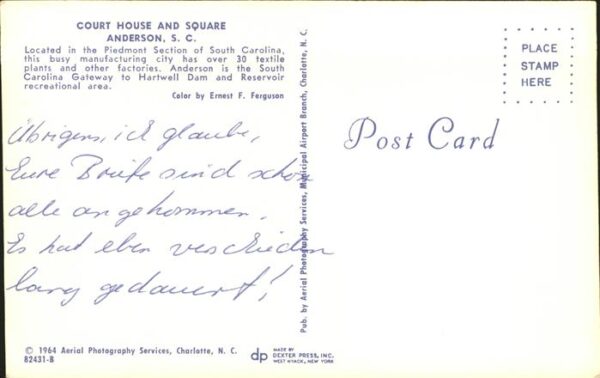 COURT HOUSE AND SQUARE
ANDERSON, S. C.
Located in the Piedmont Section of South Carolina,
this busy manufacturing city has over 30 textile
plants and other factories. Anderson is the South
Carolina Gateway to Hartwell Dam and Reservoir
recreational area.
Color by Ernest F. Ferguson
Übrigens, ich glaube,
Eure Briefe sind schon
alle angekommen.
Es hat eben verschieden
lang gedauert!
© 1964 Aerial Photography Services, Charlotte, N. C.
82431-B
Pub. by Aerial Photography Services, Municipal Airport Branch, Charlotte, N. C.
dp
MADE BY
DEXTER PRESS, INC.
WEST NYACK, NEW YORK
Post Card
PLACE
STAMP
HERE